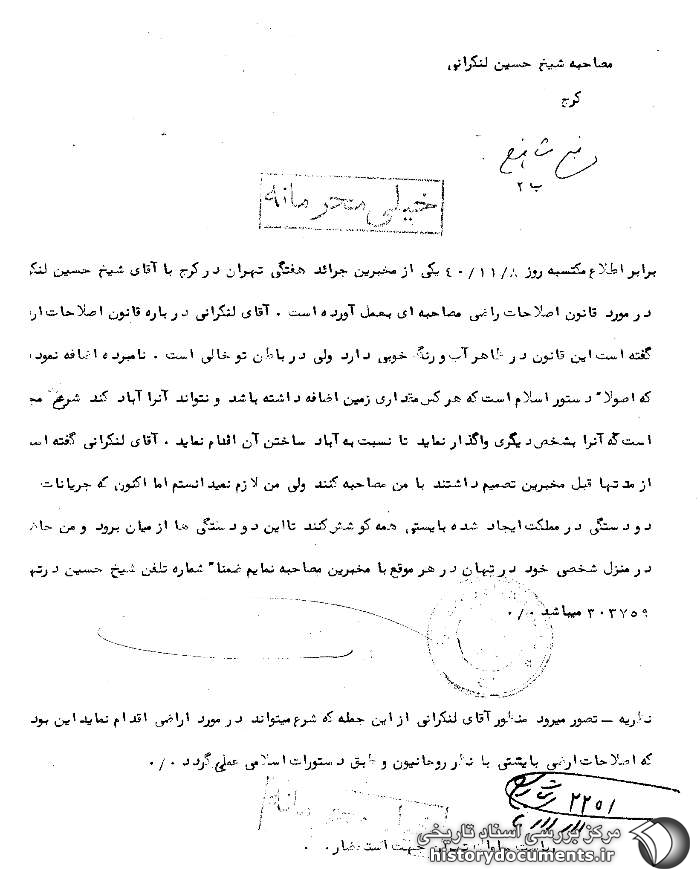 مصاحبه شیخ حسین لنکرانی
کرج
خیلی محرمانه
برابر اطلاع مکتسبه روز ۴۰/۱۱/۸ یکی از مخبرین جرائد هفتگی تهران در کرج با آقای شیخ حسین
در مورد قانون اصلاحات راضی مصاحبه ای بعمل آورده است . آقای لنکرانی در باره قانون اصلاحات
گفته است این قانون در ظاهر آب و رنگ خوبی دارد ولی در باطن تو خالی است . نامبرده اضافه نمود
که اصولا" دستور اسلام است که هر کس مقداری زمین اضافه داشته باشد و نتواند آنرا آباد کند شرع
است که آنرا بشخص دیگری واگذار نماید تا نسبت به آباد ساختن آن اقدام نماید . آقای لنکرانی گفته
از مدتها قبل مخبرین تصمیم داشتند با من مصاحبه کنند ولی من لازم نمیدانستم اما اکنون که جریانات
دو دستگی در مملکت ایجاد شده بایستی همه کوشش کنند تا این دو دستگی ها از میان برود و من
در منزل شخصی خود در تهران در هر موقع با مخبرین مصاحبه نمایم ضمنا" شماره تلفن شیخ حسین
۳۰۳۷۵۹ میباشد ۰/۰
نظریه – تصور میرود منظور آقای لنکرانی از این جمله که شرع میتواند در مورد اراضی اقدام نماید این بود
که اصلاحات ارضی بایستی با نظر روحانیون و طبق دستورات اسلامی عملی گردد ۰/۰
۲۲۵۱
جهت استحضار
مرکز بررسی اسناد تاریخی
historydocuments.ir